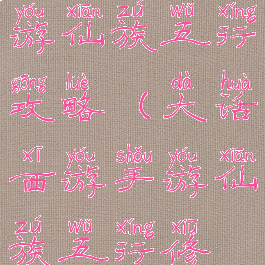 yóu xiān zú wǔ xíng
游仙族五行
gōng lüè dà huà
攻略(大话
xī yóu shǒu yóu xiān
西游手游仙
zú wǔ xíng xiū
族五行修